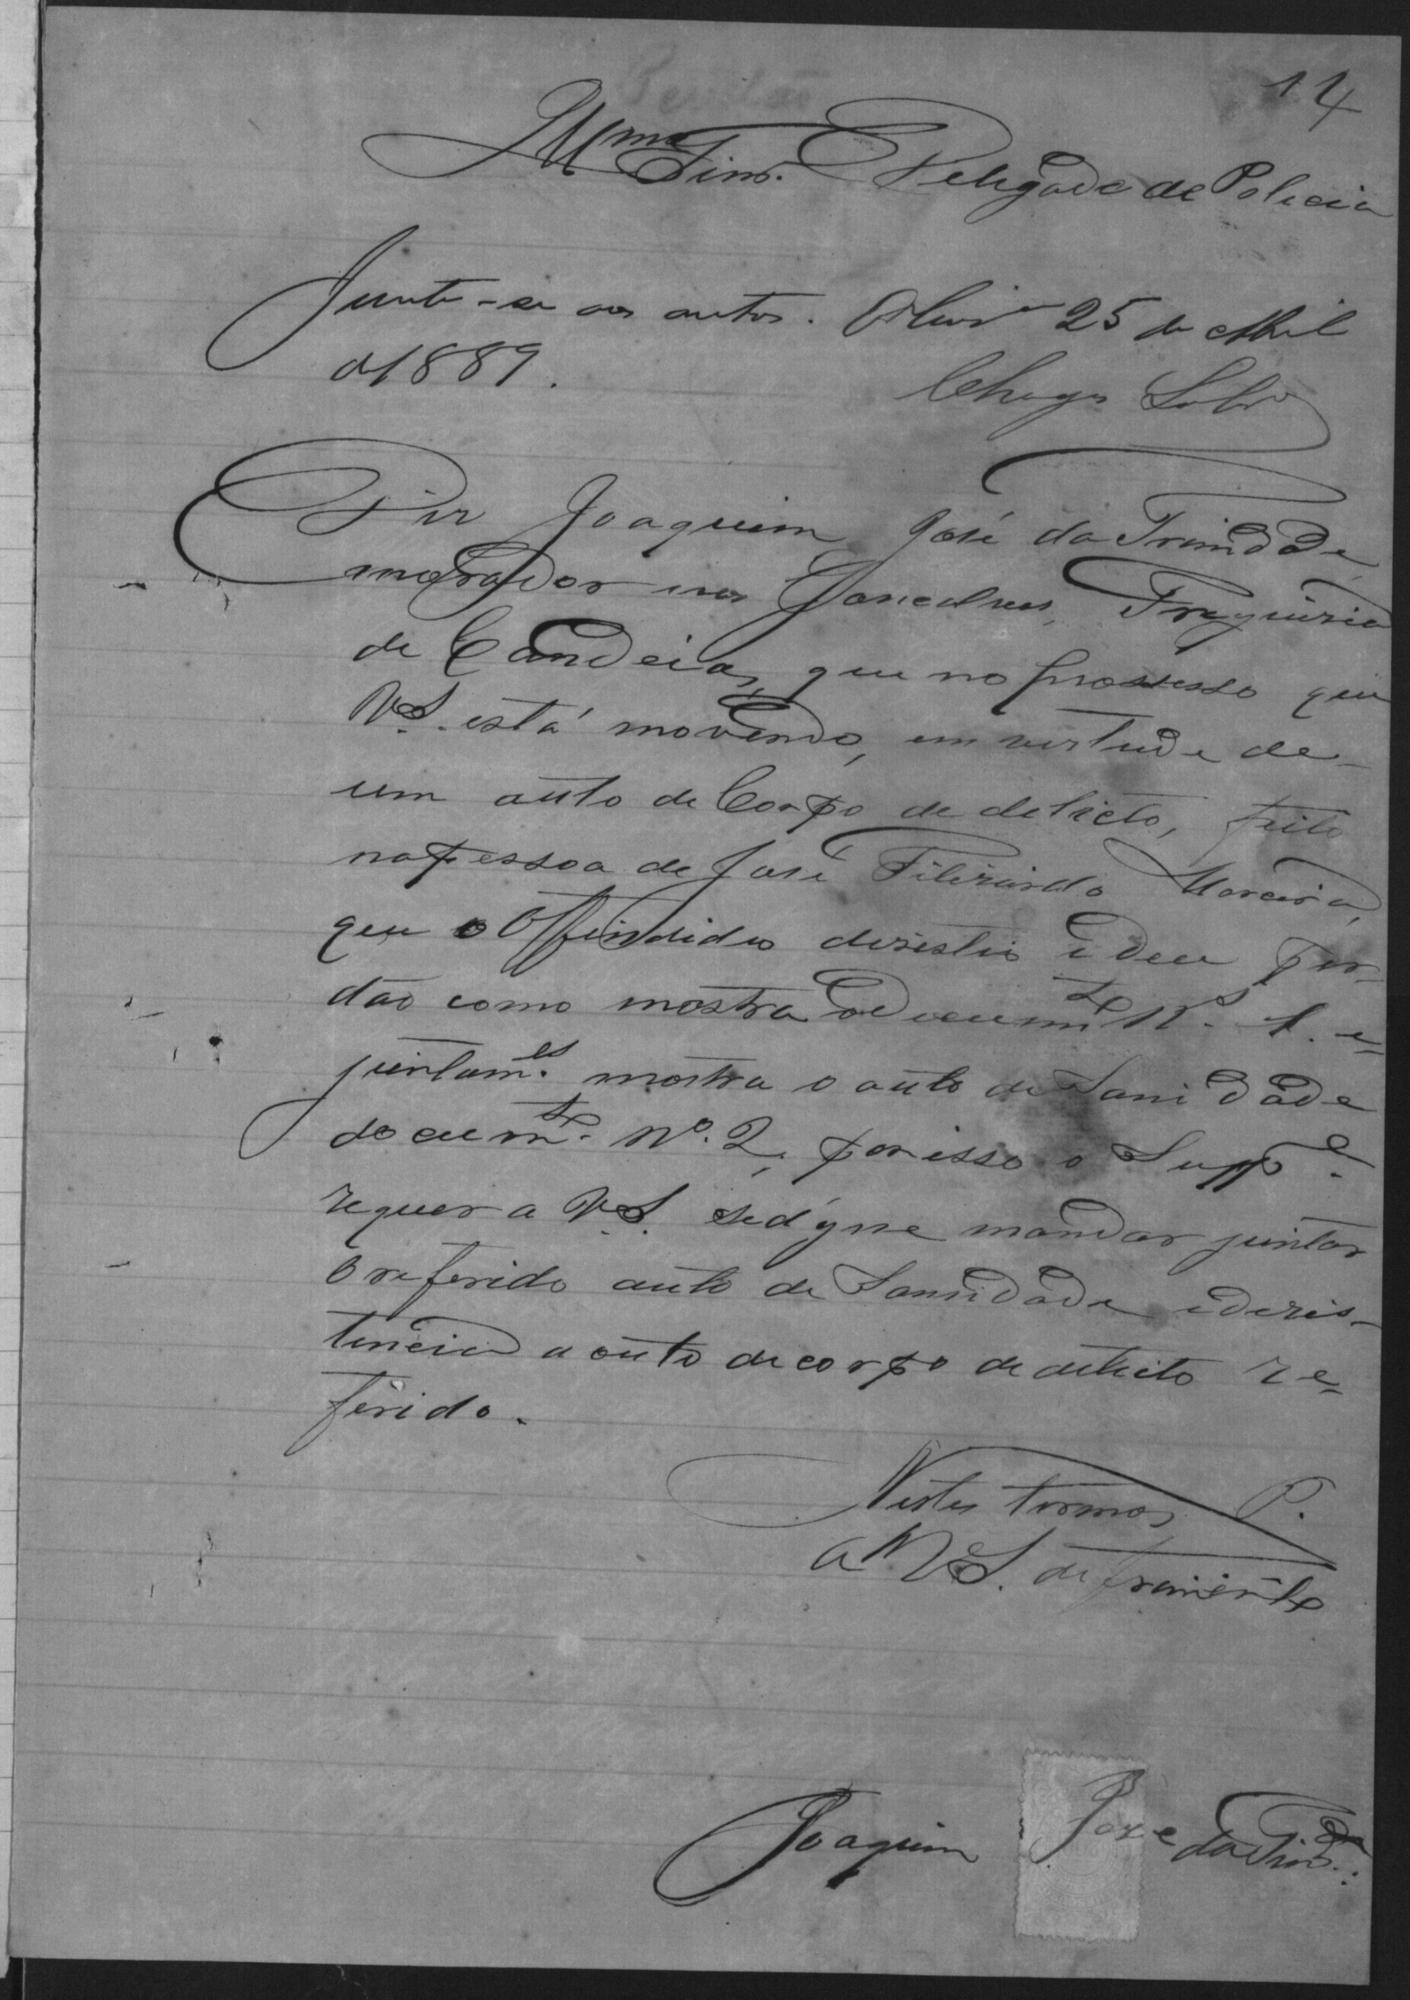 14
Illmo Snr. Delegado de Policia
Junte-se aos autos. Olivr.a 25 de Abril
de 1889.
Chagas Sobr.o
Diz Joaquim José da Trindade,
morador nos Goncalves, Freguizia
de Candeias, que no prossesso que
V.S. está movendo, em vertude de
um auto de Corpo de delicto, feito
na pessoa de José Filizardo Moreira,
que o Offindido desistio e deu per-
dão como mostra o documte. Nº. 1. e
juntam.es mostra o auto de Sanidade
documte. Nº. 2, por isso o Supp.e
requer a V.S. se dígne mandar juntar
o referido auto de Sannidade e dezis-
tencia a outo de corpo de delicto re=
ferido.
Nestes termos P.
a V.S. deframento
Joaquim Joze da Trind.e